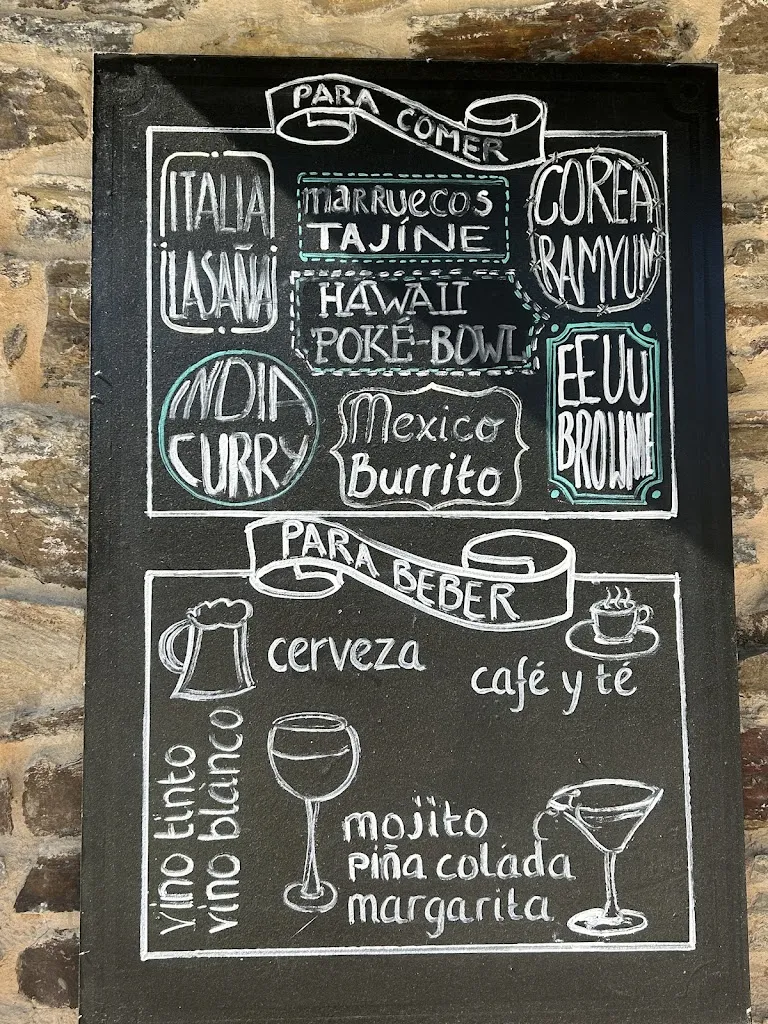 PARA COMER
ITALIA
LASAÑA
marruecos
TAJÍNE
COREA
RAMYUM
HAWAII
POKÉ-BOWL
INDIA
CURRY
Mexico
Burrito
EEUU
BROWNIE
PARA BEBER
cerveza
café y té
vino tinto
vino blanco
mojito
piña colada
margarita